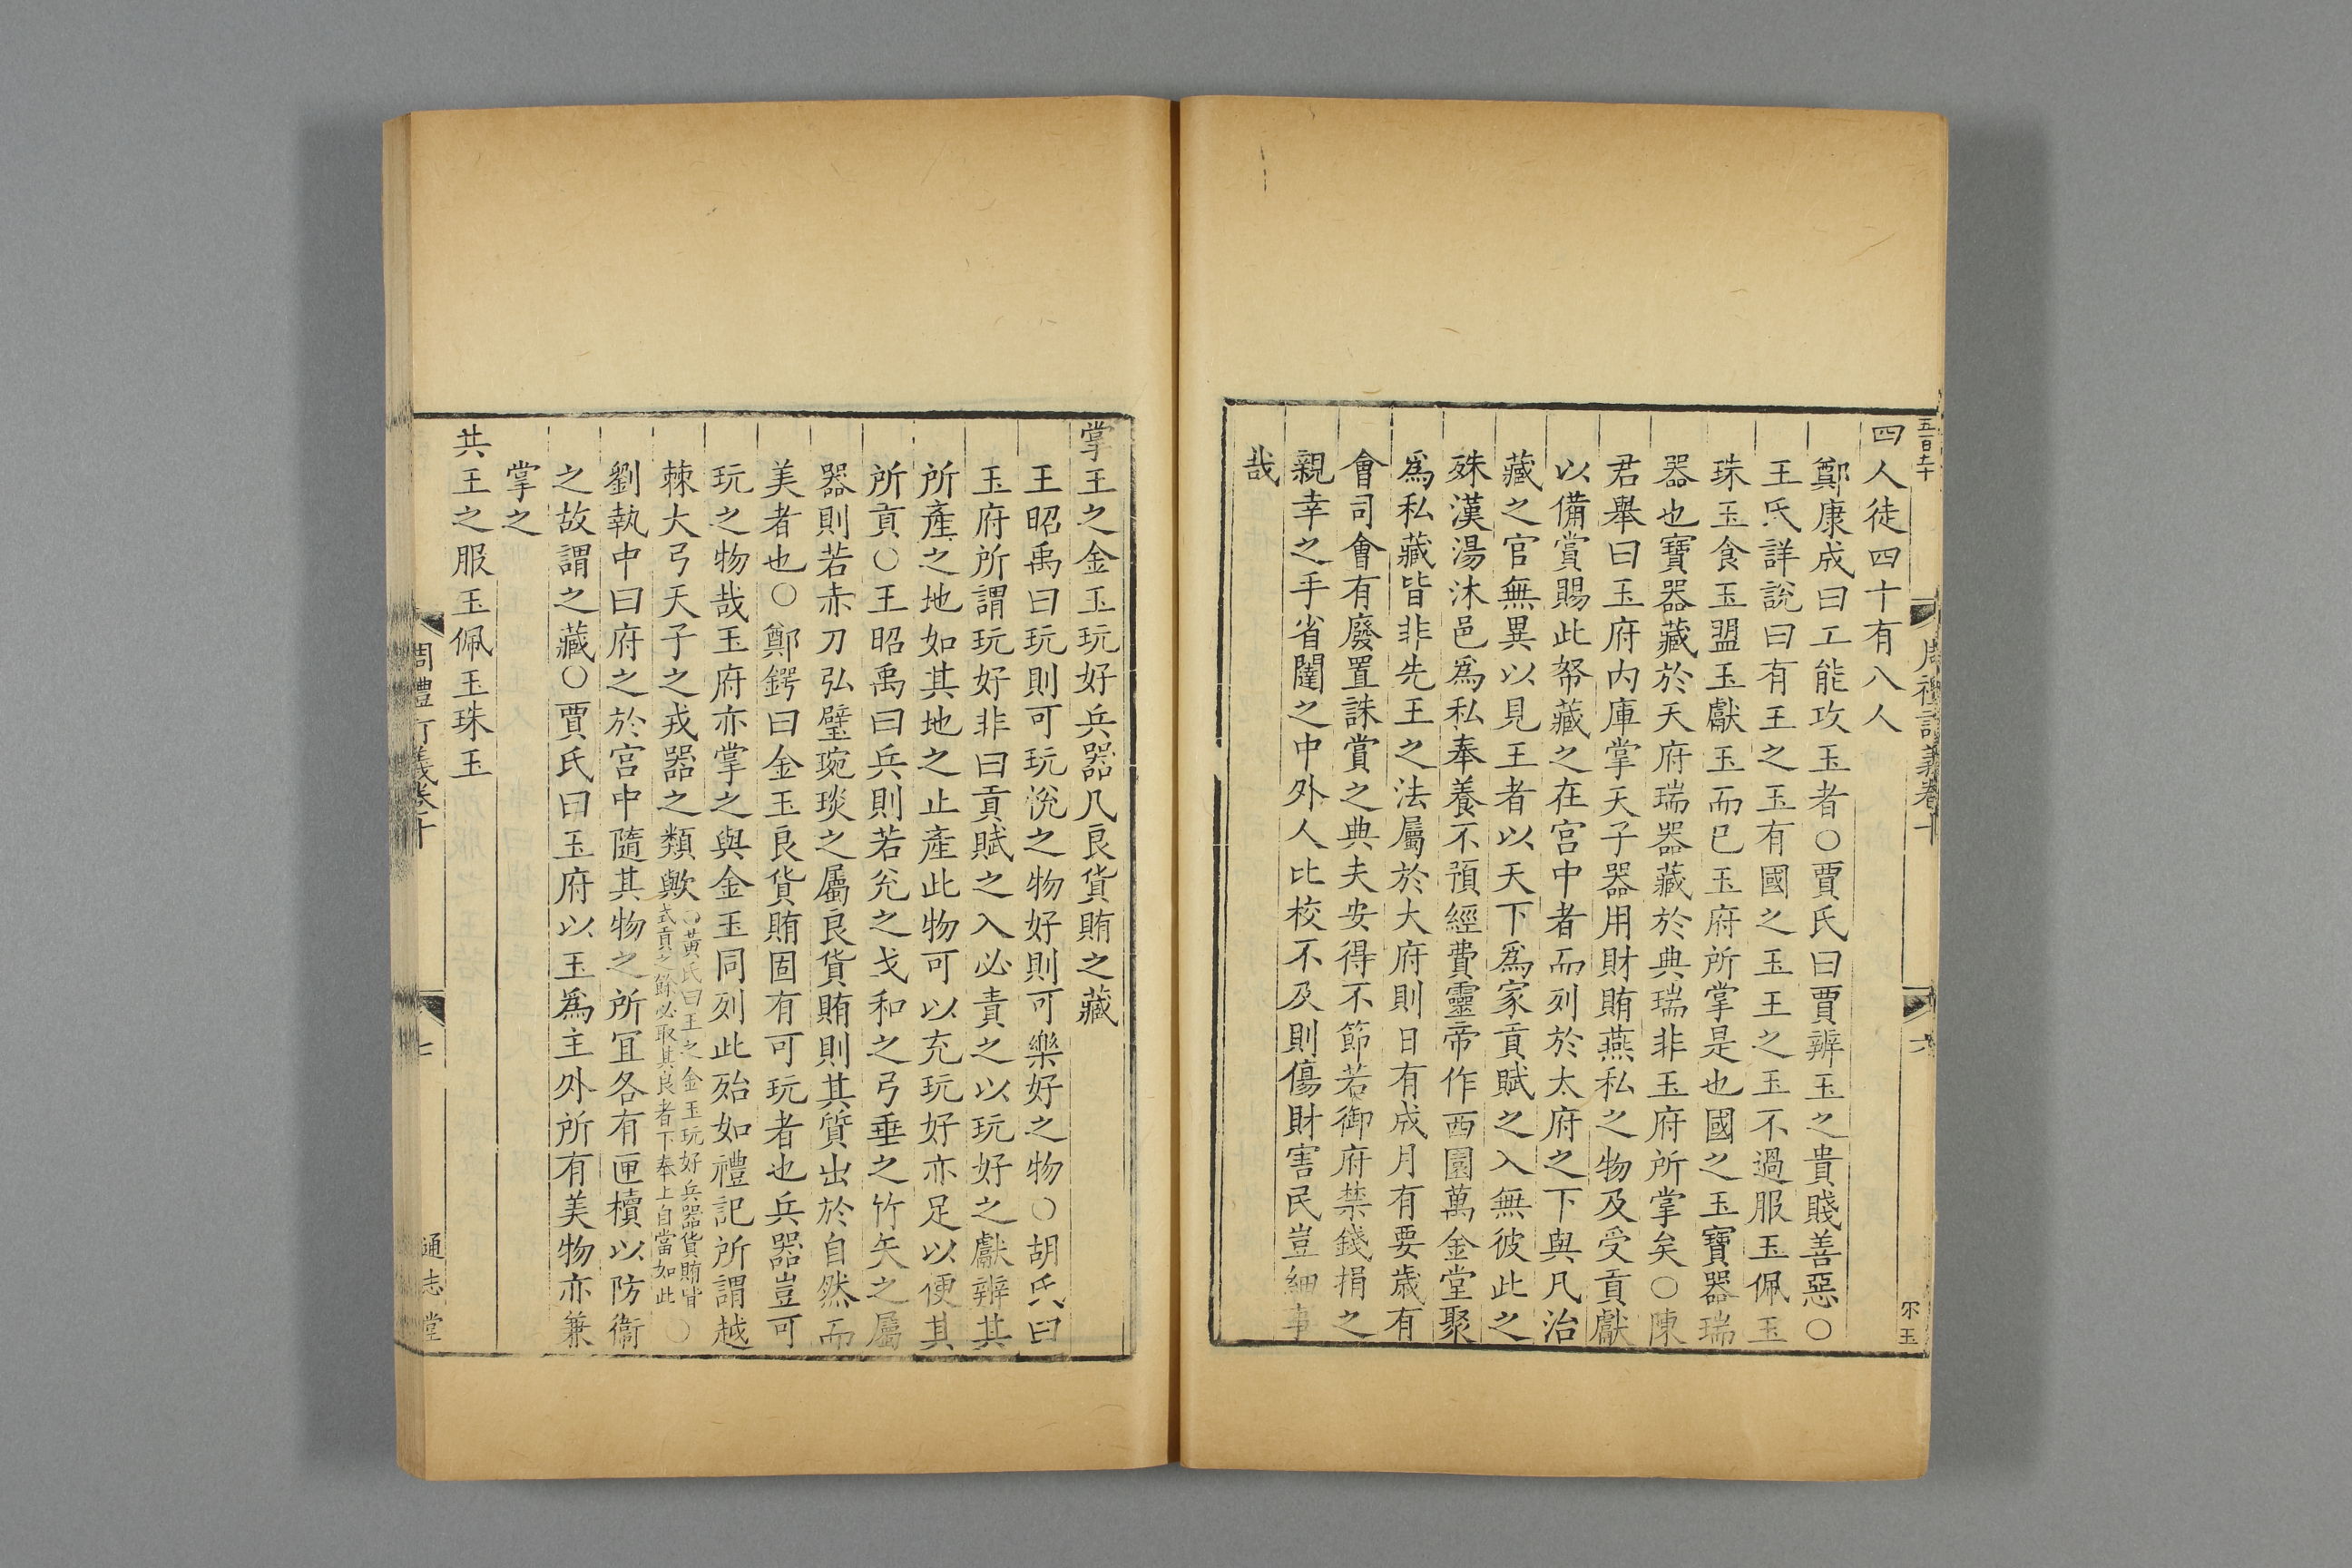 四人徒四十有八人
鄭康成曰工能攻玉者○賈氏曰賈辨玉之貴賤善惡○
王氏詳說曰有王之玉有國之玉王之玉不過服玉佩玉
珠玉食玉盟玉獻玉而已玉府所掌是也國之玉寶器瑞
器也寶器藏於天府瑞器藏於典瑞非玉府所掌矣○陳
君舉曰玉府内庫掌天子器用財賄燕私之物及受貢獻
以備賞賜此帑藏之在宫中者而列於太府之下與凡治
藏之官無異以見王者以天下爲家貢賦之入無彼此之
殊漢湯沐邑爲私奉養不預經費靈帝作西園萬金堂聚
爲私藏皆非先王之法屬於大府則日有成月有要歲有
會司會有廢置誅賞之典夫安得不節若御府禁錢捐之
親幸之手省闥之中外人比校不及則傷財害民豈細事
哉
周禮訂義卷十
六
尔玉
掌王之金玉玩好兵器凡良貨賄之藏
王昭禹曰玩則可玩悅之物好則可樂好之物○胡氏曰
玉府所謂玩好非曰貢賦之入必責之以玩好之獻辨其
所產之地如其地之止產此物可以充玩好亦足以便其
所貢○王昭禹曰兵則若兊之戈和之弓垂之竹矢之屬
器則若赤刀弘璧琬琰之屬良貨賄則其質出於自然而
美者也○鄭鍔曰金玉良貨賄固有可玩者也兵器豈可
玩之物哉玉府亦掌之與金玉同列此殆如禮記所謂越
棘大弓天子之戎器之類歟○黃氏曰王之金玉玩好兵器貨賄皆式貢之餘必取其良者下奉上自當如此○
劉執中曰府之於宫中隨其物之所宜各有匣櫝以防衞
之故謂之藏○賈氏曰玉府以玉爲主外所有美物亦兼
掌之
共王之服玉佩玉珠玉
周禮訂義卷十
七
通志堂